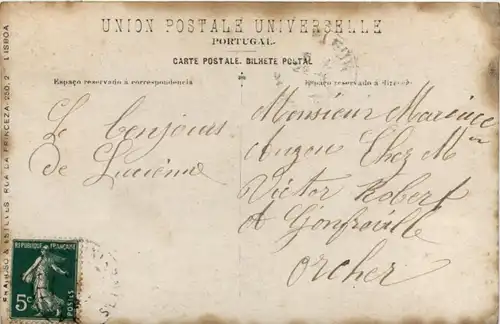 UNION POSTALE UNIVERSELLE
PORTUGAL
CARTE POSTALE. BILHETE POSTAL
Espaço reservado á correspondencia
Espaço reservado á direcção
Le bonjours
de Lucienne
Monsieur Maurice
Auzou Chez Mr
Victor Robert
A Gonfreville
Orcher
RUA DA PRINCEZA, 250, 2º LISBOA
REPUBLIQUE FRANÇAISE
5c POSTES